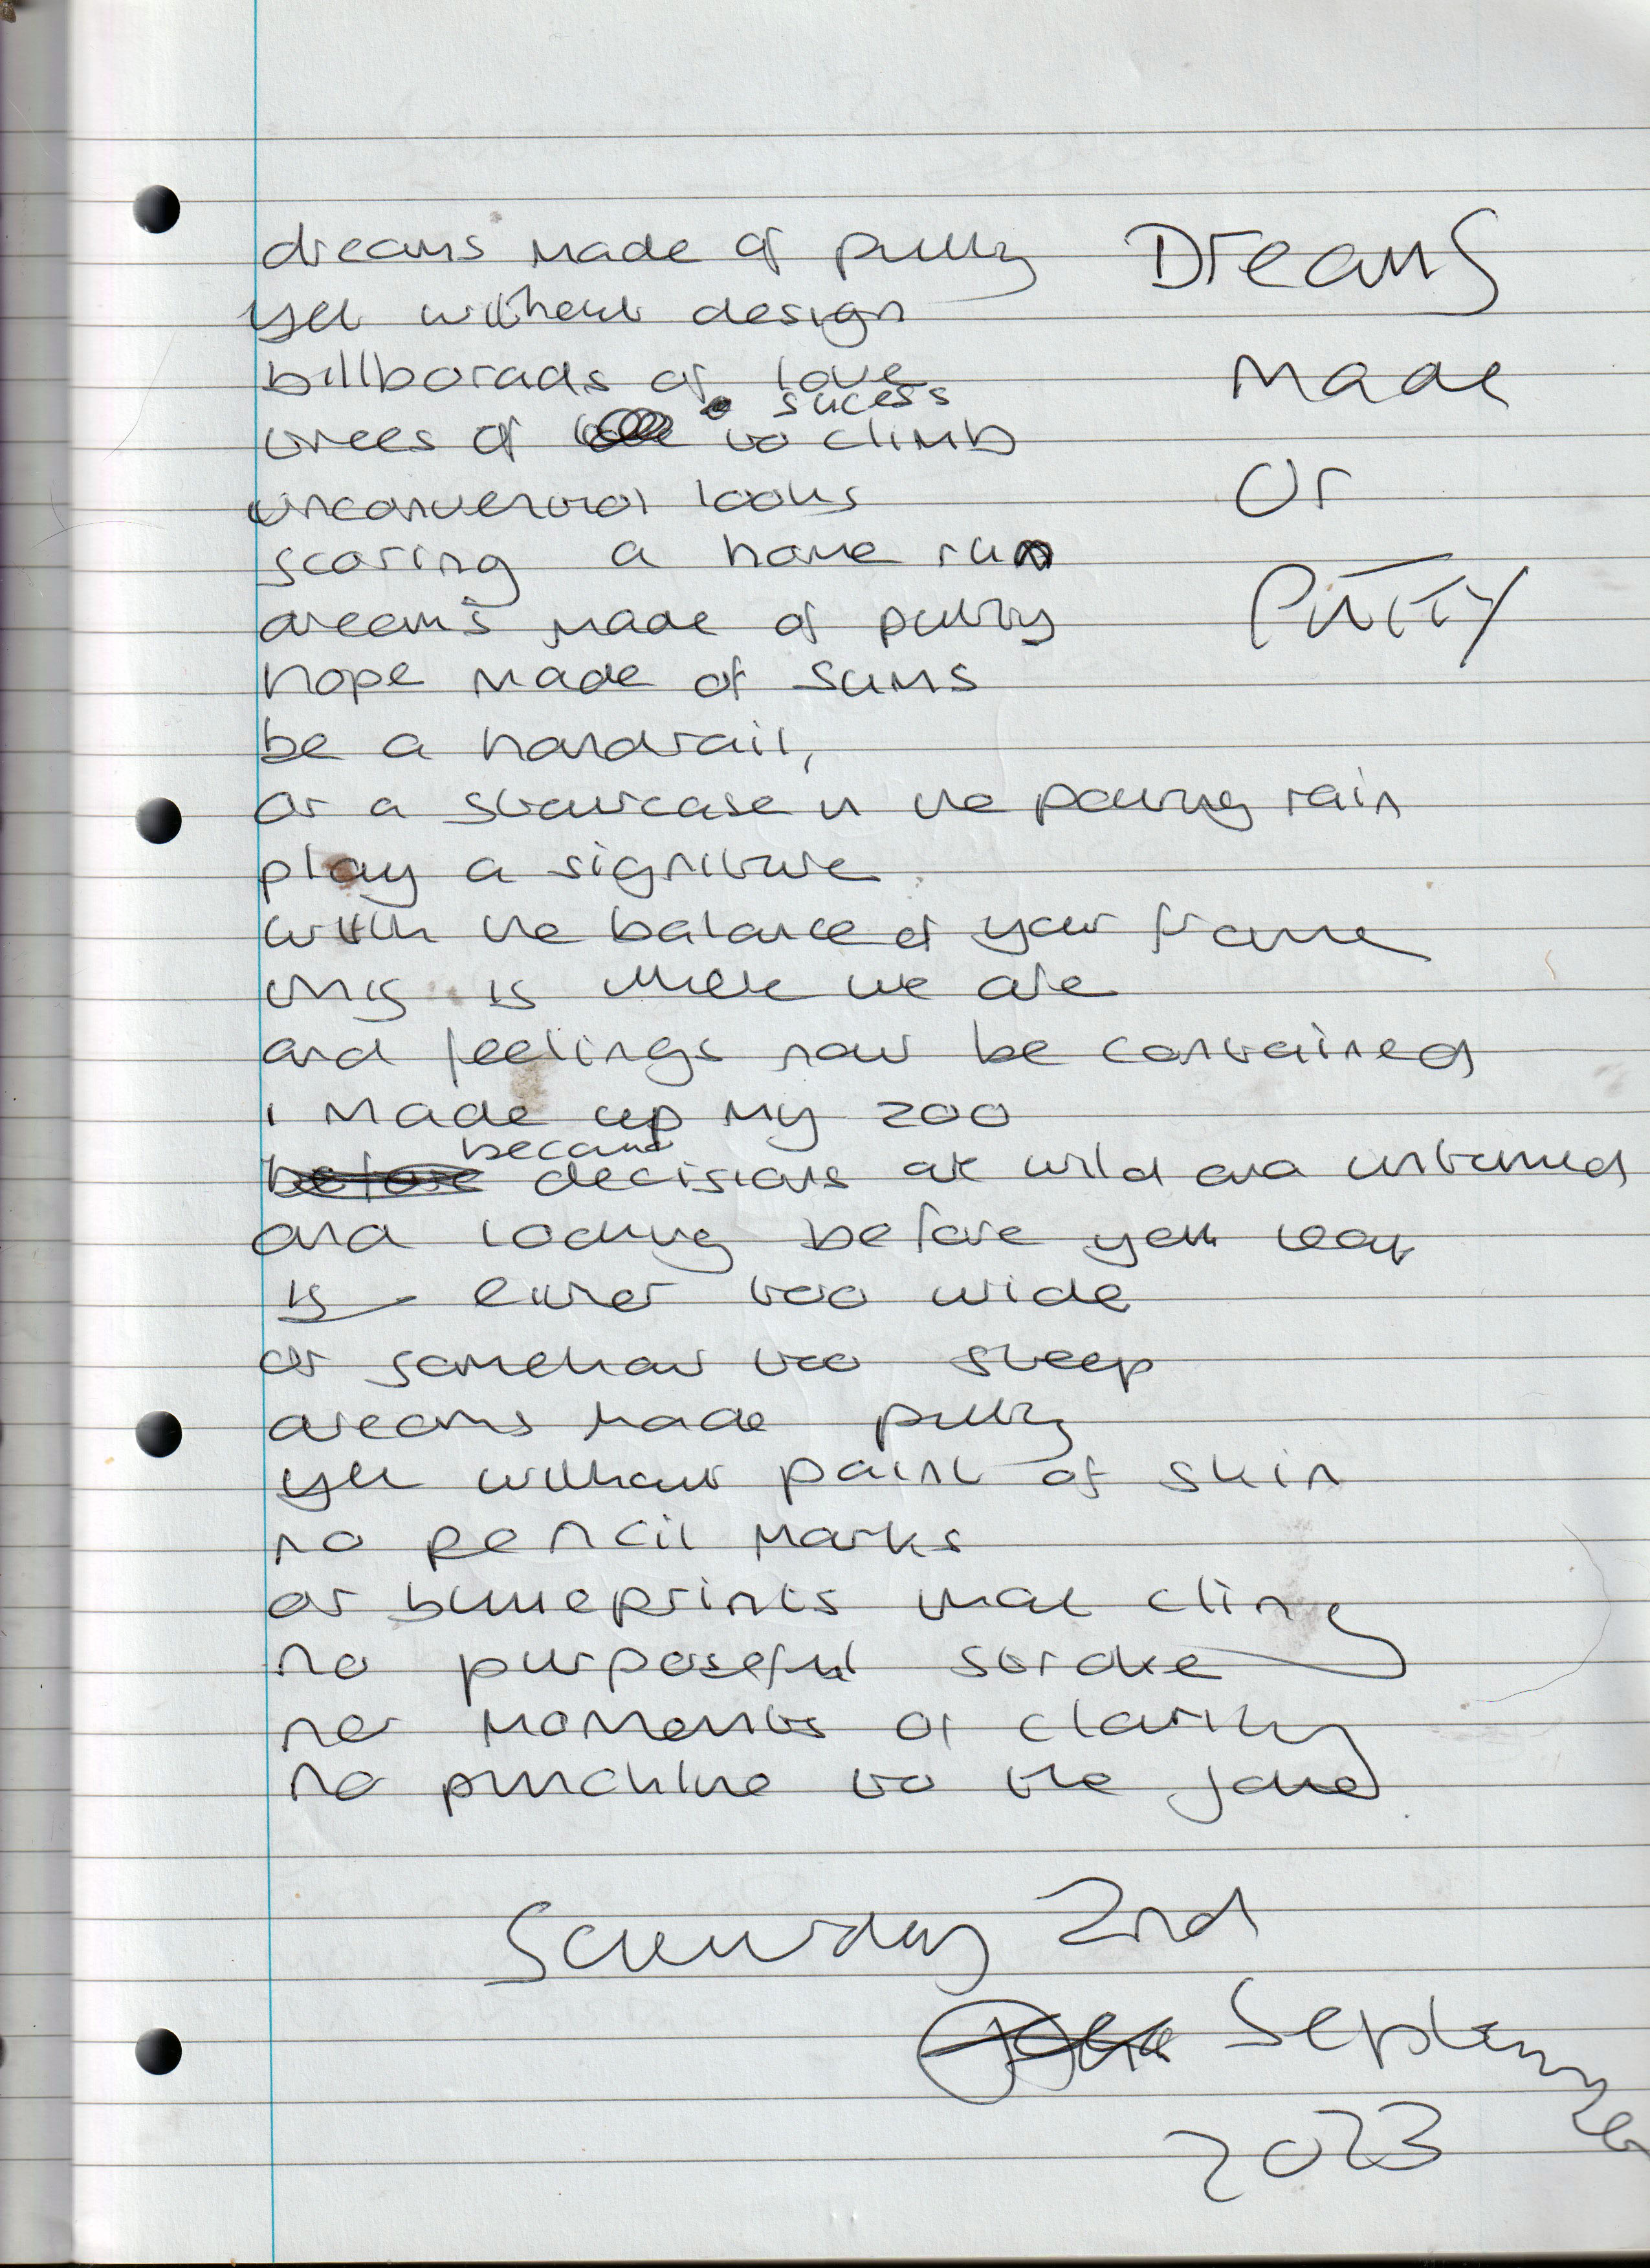 Dreams
Made
Of
Putty
dreams made of putty
yet without design
billborads of love
sucess
trees of to climb
looks
scoring a home run
dreams made of putty
hope made of sums
be a handrail,
or a staircase in the pouring rain
play a signiture
with the balance of your frame
this is where we are
and feelings now be contained
i made up my zoo
because
before decisions are wild and untamed
and looking before you leap
is either too wide
or somehow too steep
dreams made putty
yet without paint of skin
no pencil marks
or blueprints that cling
no purposeful stroke
no moments of clarity
no punchline to the joke
Saturday 2nd
September
2023